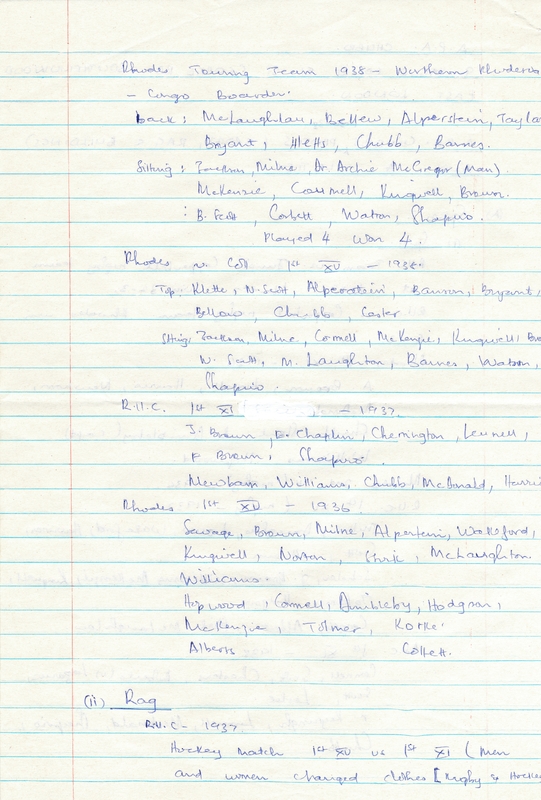 Rhodes Touring Team 1938 - Northern Rhodesia
- Congo Boarder.
back: McLaughlan, Bellew, Alperstein, Taylor
Bryant, Chubb, Barnes.
Sitting: Jackson, Milne, Dr. Archie McGregor (Man).
McKenzie, Connell, Kingwell, Brown.
: B. Corbett, Watson, Shapiro.
Played 4 Won 4.
Rhodes v. Coll 1st XV - 1938.
Top, Klette, N. Scott, Alperstein, Bryant,
Bellow, Chubb, Carter
Sitting, Jackson, Milne, Cornell, McKenzie, Kingwell, Bro
W. Scott, M. Laughton, Barnes, Watson,
Shapiro.
R.U.C. 1st XI - 1937.
J. Brown, E. Chaplin, Cherrington, Lennell,
F Brown, Shapiro.
Newham, Williams, Chubb, McDonald, Harri
Rhodes 1st XV - 1936
Savage, Brown, Milne, Alpertein, Wakeford,
Kingwell, Norton, McLaughton.
Williams.
Hopwood, Connell, Dimbleby, Hodgson,
McKenzie, Tolmer, Korke
Alberts Collett.
(ii) Rag
R.U.C - 1937
Hockey Match 1st XV vs 1st XI (Men
and women changed clothes [Rugby & Hockey